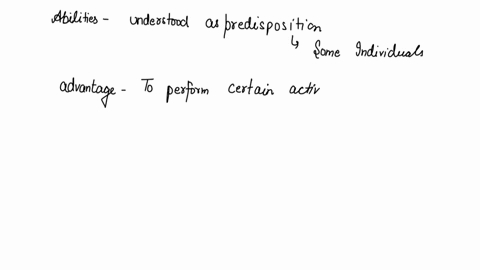 Abilities - understood as predisposition
↳ Some Individuals
advantage - To perform certain activ